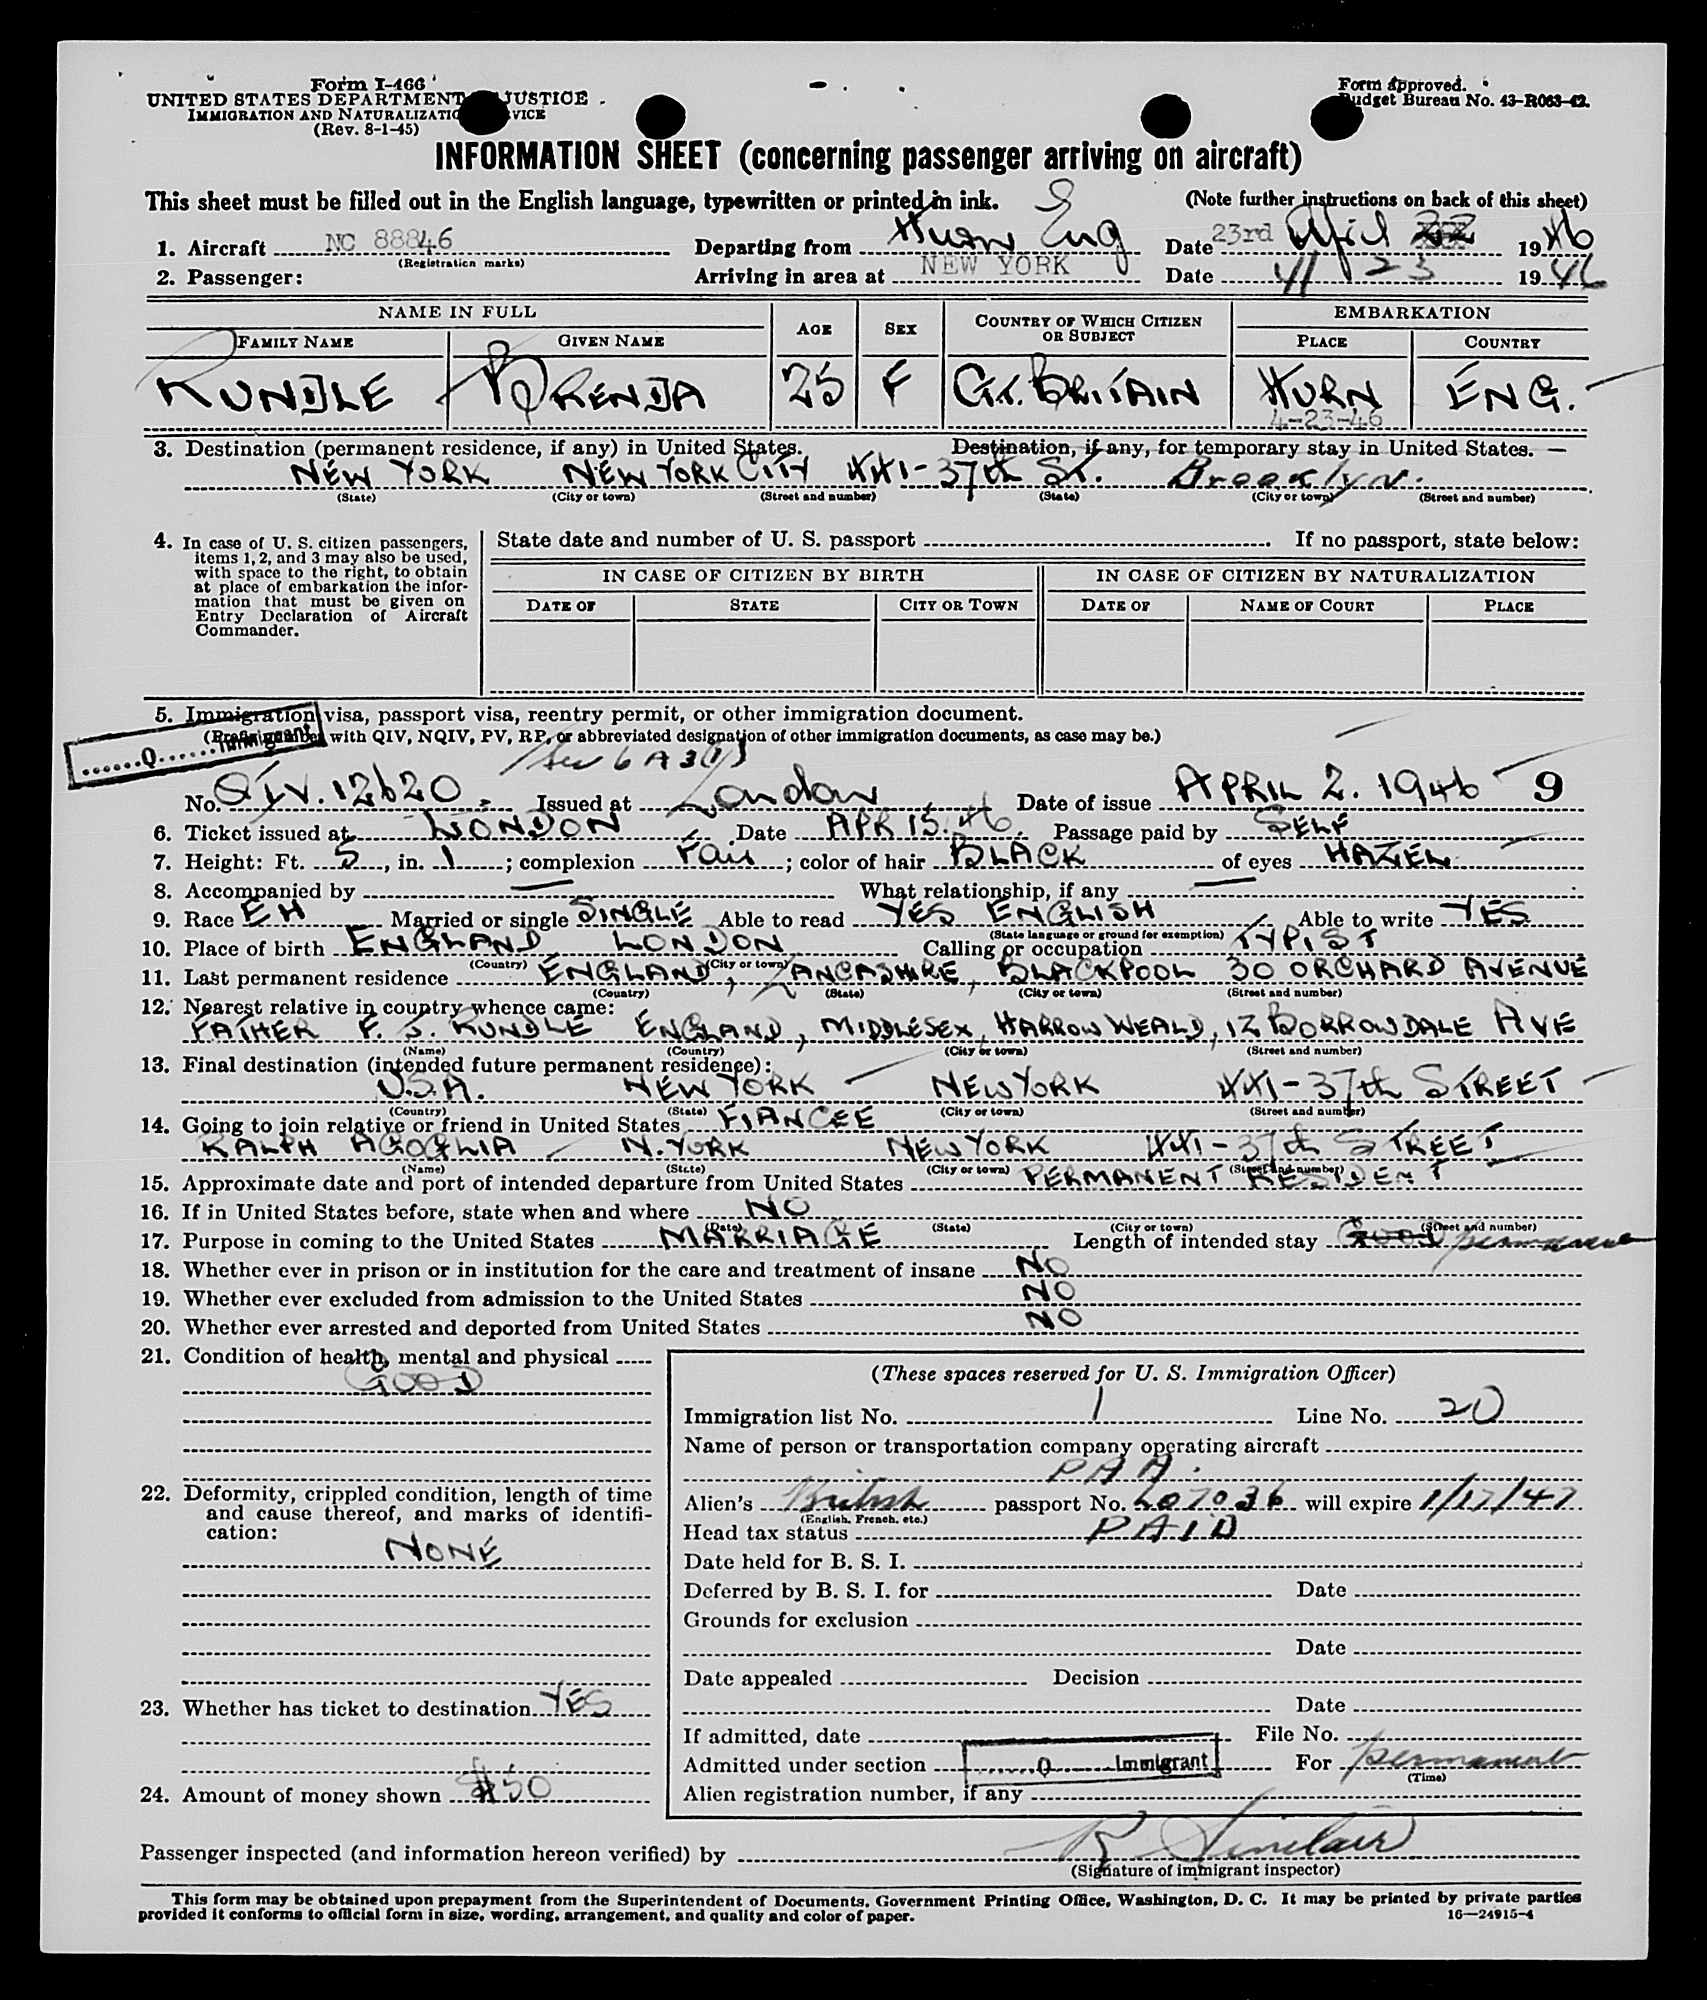 Form I-466
UNITED STATES DEPARTMENT JUSTICE
IMMIGRATION AND NATURALIZATION SERVICE
(Rev. 8-1-45)
Form Approved.
Budget Bureau No. 43-R063-42.
INFORMATION SHEET (concerning passenger arriving on aircraft)
This sheet must be filled out in the English language, typewritten or printed in ink. (Note further instructions on back of this sheet)
1. Aircraft NC 88846 Departing from Hurn Eng Date 23rd April 22 1946
(Registration marks)
2. Passenger: Arriving in area at NEW YORK Date 4/23 1946
NAME IN FULL AGE SEX COUNTRY OF WHICH CITIZEN OR SUBJECT EMBARKATION
FAMILY NAME GIVEN NAME PLACE COUNTRY
RUNDLE BRENDA 25 F GT. BRITAIN HURN ENG.
4-23-46
3. Destination (permanent residence, if any) in United States. Destination, if any, for temporary stay in United States. —
NEW YORK NEW YORK CITY 441-37th ST. Brooklyn.
(State) (City or town) (Street and number) (State) (City or town) (Street and number)
4. In case of U. S. citizen passengers, items 1, 2, and 3 may also be used, with space to the right, to obtain at place of embarkation the information that must be given on Entry Declaration of Aircraft Commander.
State date and number of U. S. passport . If no passport, state below:
IN CASE OF CITIZEN BY BIRTH IN CASE OF CITIZEN BY NATURALIZATION
DATE OF STATE CITY OR TOWN DATE OF NAME OF COURT PLACE
5. Immigration visa, passport visa, reentry permit, or other immigration document.
(Prefix number with QIV, NQIV, PV, RP, or abbreviated designation of other immigration documents, as case may be.)
Q Immigrant
Sec 6 A 3 (1)
No. QIV. 12620. Issued at London Date of issue APRIL 2. 1946 9
6. Ticket issued at LONDON Date APR 15. 46. Passage paid by SELF
7. Height: Ft. 5, in. 1; complexion Fair; color of hair BLACK of eyes HAZEL
8. Accompanied by — What relationship, if any —
9. Race EH Married or single SINGLE Able to read YES ENGLISH Able to write YES
(State language or ground for exemption)
10. Place of birth ENGLAND LONDON Calling or occupation TYPIST
(Country) (City or town)
11. Last permanent residence ENGLAND, LANCASHIRE, BLACKPOOL 30 ORCHARD AVENUE
(Country) (State) (City or town) (Street and number)
12. Nearest relative in country whence came:
FATHER F. S. RUNDLE ENGLAND, MIDDLESEX, HARROW WEALD, 12 BORROWDALE AVE
(Name) (Country) (City or town) (Street and number)
13. Final destination (intended future permanent residence):
U.S.A. NEW YORK NEW YORK 441-37th STREET
(Country) (State) (City or town) (Street and number)
14. Going to join relative or friend in United States FIANCEE
RALPH AGOGLIA N.YORK NEW YORK 441-37th STREET
(Name) (State) (City or town) (Street and number)
15. Approximate date and port of intended departure from United States PERMANENT RESIDENT
16. If in United States before, state when and where NO
(Date) (State) (City or town) (Street and number)
17. Purpose in coming to the United States MARRIAGE Length of intended stay GOOD permanent
18. Whether ever in prison or in institution for the care and treatment of insane NO
19. Whether ever excluded from admission to the United States NO
20. Whether ever arrested and deported from United States NO
21. Condition of health, mental and physical
GOOD
22. Deformity, crippled condition, length of time and cause thereof, and marks of identification:
NONE
23. Whether has ticket to destination YES
24. Amount of money shown $50
(These spaces reserved for U. S. Immigration Officer)
Immigration list No. 1 Line No. 20
Name of person or transportation company operating aircraft
PAA.
Alien's British passport No. 207036 will expire 1/17/47
(English, French, etc.)
Head tax status PAID
Date held for B. S. I.
Deferred by B. S. I. for Date
Grounds for exclusion
Date
Date appealed Decision
Date
If admitted, date File No.
Admitted under section Q Immigrant For permanent
(Time)
Alien registration number, if any
Passenger inspected (and information hereon verified) by R Sinclair
(Signature of immigrant inspector)
This form may be obtained upon prepayment from the Superintendent of Documents, Government Printing Office, Washington, D. C. It may be printed by private parties
provided it conforms to official form in size, wording, arrangement, and quality and color of paper. 16—24915-4